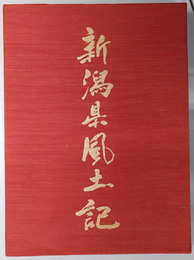 新潟県風土記